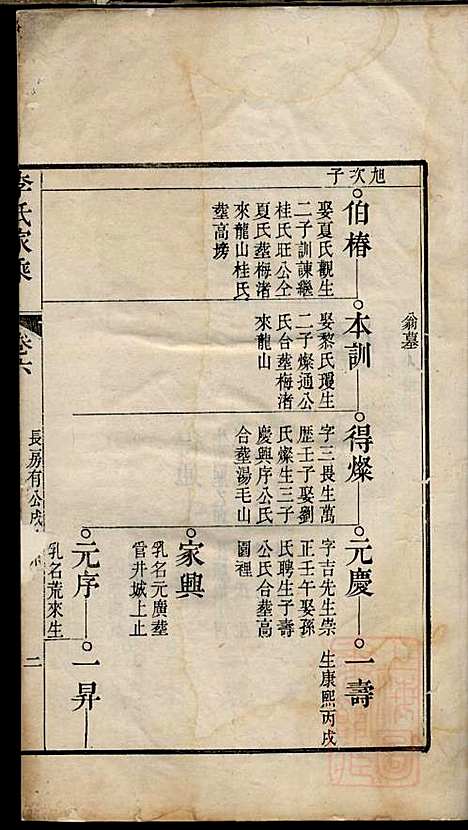 翁墓
旭次子
伯椿
娶夏氏觀生
二子訓諫繼
桂氏旺公仝
夏氏塟梅渚
來龍山桂氏
塟高塝
本訓
娶黎氏瓊生
二子燦通公
氏台塟梅渚
來龍山
得燦
字三畏生萬
歴壬子娶劉
氏燦生三子
慶興序公氏
合塟湯毛山
元慶
字吉先生崇
正壬午娶孫
氏聘生子壽
公氏合塟高
園裡
一壽
生康熙丙戌
家興
乳名元廣塟
官井城上止
元序
乳名荒來生
一昇
李氏家乘
卷六
長房有公戍
二